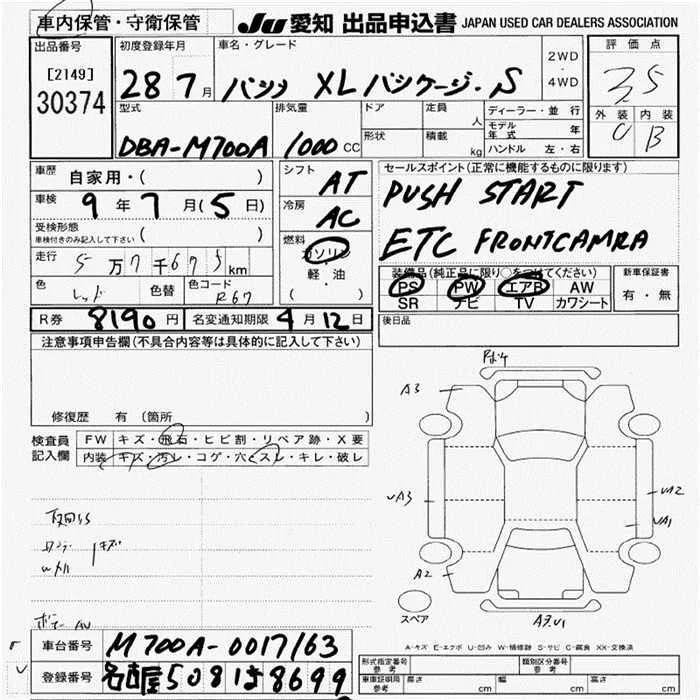 車内保管・守衛保管 JU 愛知 出品申込書 JAPAN USED CAR DEALERS ASSOCIATION
出品番号
[2149]
30374
初度登録年月
28 7月
車名・グレード
XL パッケージ・S
2WD
4WD
評価点
3.5
外装 内装
C B
型式
DBA-M700A
排気量
1000 CC
ドア 定員 人
形状 積載 kg
ディーラー・並行
モデル年式 年
ハンドル 左・右
車歴 自家用・( )
車検 9年7月(5日)
受検形態
車検付きのみ記入して下さい ( )
走行 5万7千675km
色 レッド 色替 色コード R67
シフト AT
冷房 AC
燃料 ガソリン
軽・油
( )
セールスポイント(正常に機能するものに限ります)
PUSH START
ETC FRONTCAMRA
装備品(純正品に限り○をつけてください)
PS PW エアB AW
SR ナビ TV カワシート
新車保証書
有・無
R券 8190円 名変通知期限 4月12日
後日品
注意事項申告欄(不具合内容等は具体的に記入して下さい)
修復歴 有 (箇所
検査員記入欄
FW キズ・飛石・ヒビ割・リペア跡・X要
内装 キズ・汚レ・コゲ・穴・スレ・キレ・破レ
A3
UA3
UA2
UA1
A2
スペア
A-キズ E-エクボ U-凹み W-補修跡 S-サビ C-腐食 XX-交換済
車台番号 M700A-0017163
登録番号 名古屋508 ほ 8699
形式指定番号 参考
類別区分番号 参考
車庫証明用 参考 長さ cm 幅 cm 高さ cm